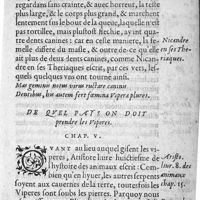 regardans sans crainte, & auec horreur, la teste
plus large, & le corps plus grand, & marchent
lentement sans leboux de la queüe, laquelle n'est pas
tortillee, mais plustost sechie, ay vint quatre
dents canines: car en ceste maniere, la femelle
differe du masle, & outre ce, de deux
ou de plus de deux dents canines, comme Nicandre
en ses Theriaques escrit, par ces vers, lesquels
quelques vns ont tourné ainsi.
Mas geminos notus virus iactare canino
Dentibus, hic autem fert fœmina Vipera plures.
Nicandre
en ses The-
riaques.
DE QVEL PAYS ON DOIT
prendre les Viperes.
CHAP. V.
QVANT au lieu auquel gisent les viperes,
Aristote au liure huictiesme de
l'hystoire des animaux escrit: Combien
qu'en hyuer, les autres serpens
soyent aux cauernes de la terre, toutesfois les
Viperes sont soubs les pierres. Parquoy nous
Aristo.
liur. 8. des
animaux
chap. 15.